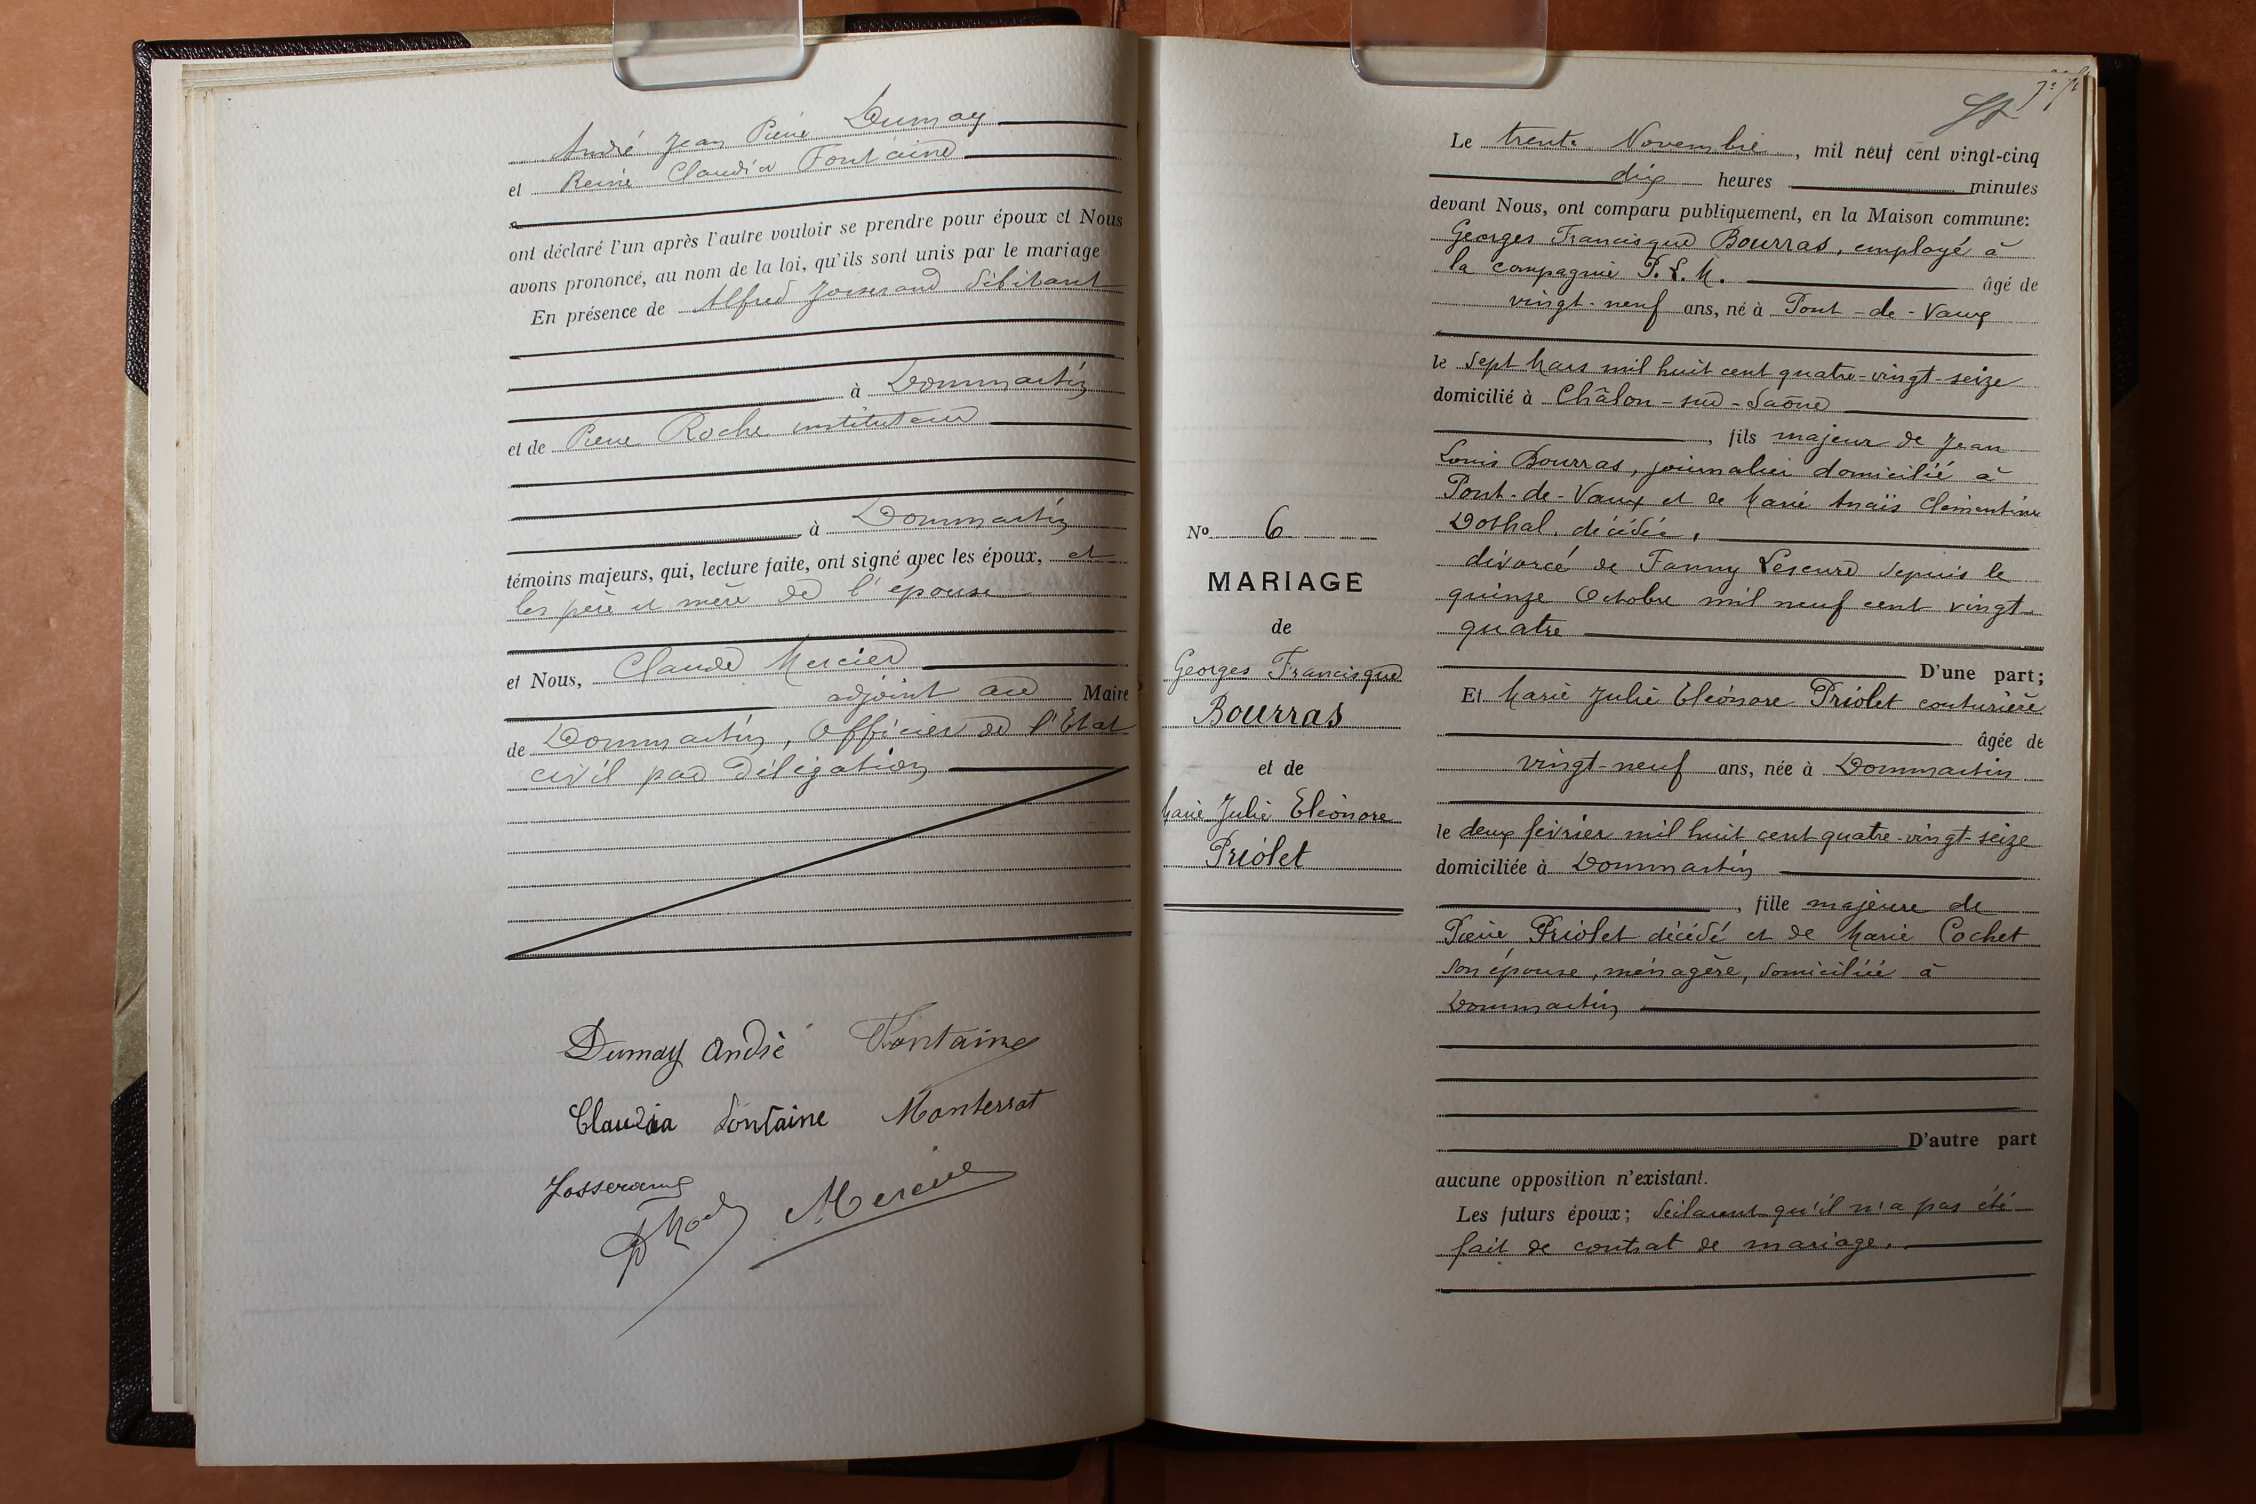 André Jean Pierre Dumay
et Reine Claudia Fontaine
ont déclaré l'un après l'autre vouloir se prendre pour époux et Nous
avons prononcé, au nom de la loi, qu'ils sont unis par le mariage
En présence de Alfred Josserand débitant
à Dommartin
et de Pierre Roche instituteur
à Dommartin
témoins majeurs, qui, lecture faite, ont signé avec les époux, et
les père et mère de l'épouse
et Nous, Claude Mercier
adjoint au Maire
de Dommartin, Officier de l'Etat
civil par délégation
Dumay André Fontaine
Claudia Fontaine Monterrat
Josserand
Mercier
Le trente Novembre, mil neuf cent vingt-cinq
dix heures minutes
devant Nous, ont comparu publiquement, en la Maison commune:
Georges Francisque Bourras, employé à
la compagnie P.L.M. âgé de
vingt-neuf ans, né à Pont-de-Vaux
le sept Mars mil huit cent quatre-vingt-seize
domicilié à Châlon-sur-Saône
, fils majeur de Jean
Louis Bourras, journalier domicilié à
Pont-de-Vaux et de Marie Anaïs Clémentine
Dothal, décédée,
divorcé de Fanny Lescure depuis le
quinze Octobre mil neuf cent vingt
quatre
D'une part;
Et Marie Julie Eléonore Priolet couturière
âgée de
vingt-neuf ans, née à Dommartin
le deux février mil huit cent quatre-vingt-seize
domiciliée à Dommartin
, fille majeure de
Pierre Priolet décédé et de Marie Cochet
son épouse, ménagère, domiciliée à
Dommartin
D'autre part
aucune opposition n'existant.
Les futurs époux; déclarent qu'il n'a pas été
fait de contrat de mariage.
No 6
MARIAGE
de
Georges Francisque
Bourras
et de
Marie Julie Eléonore
Priolet